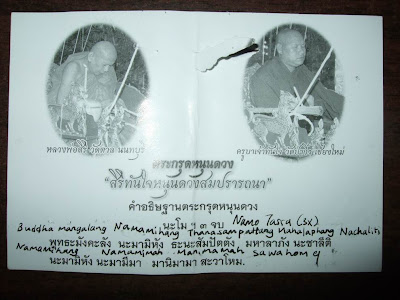 หลวงพ่อสิริ วัดตาล นนทบุรี
ตระกรุดหนุนดวง
"สิริทันใจหนุนดวงสมปรารถนา"
คำอธิษฐานตระกรุดหนุนดวง
นะโม ๆ ๓ จบ Namo Tassa (3x)
Buddha mangalang Namamihang Thanasampattang Mahalaphang Nachaliti
พุทธะมังคะลัง นะมามิหัง ธะนะสัมปัตตัง มหาลาภัง นะชาลิติ
Namamihang Namamimah Manimamah Sawahom
นะมามิหัง นะมามิมา มานิมามา สะวาโหม.